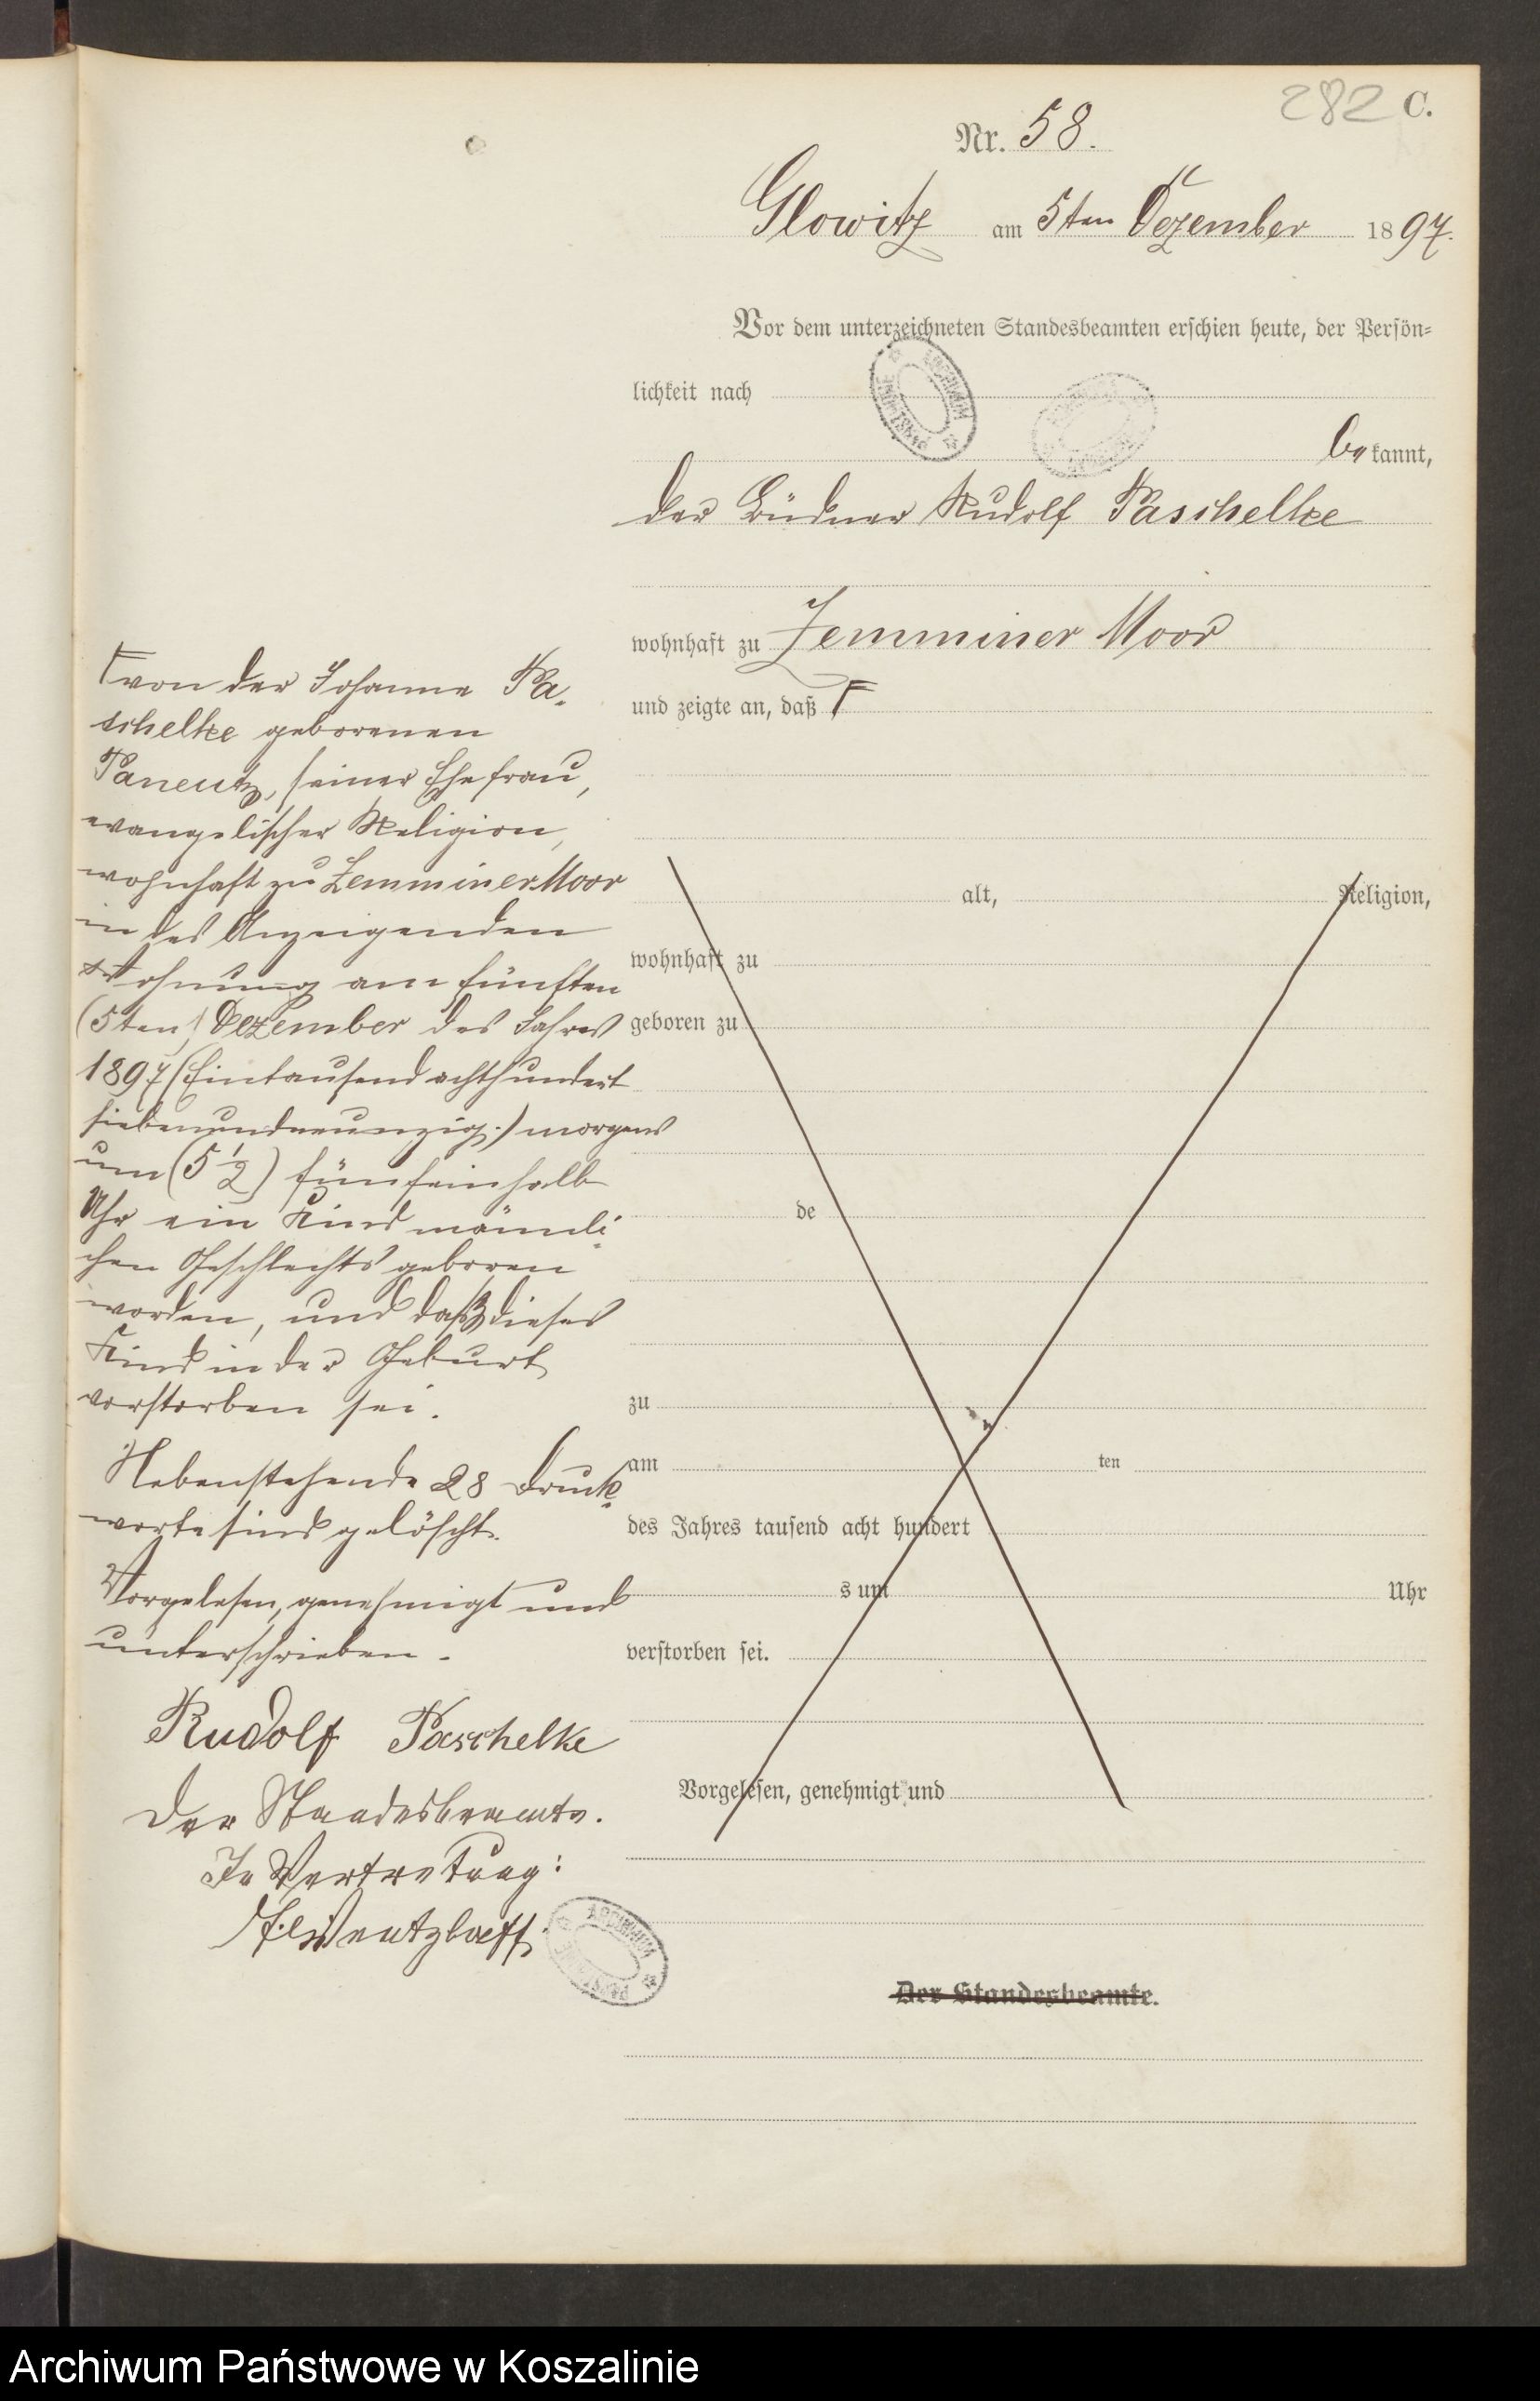 282 C.
Nr. 58.
Glowitz am 5ten Dezember 1897.
Vor dem unterzeichneten Standesbeamten erschien heute, der Persön-
lichkeit nach
bekannt,
der Büdner Rudolf Paschelke
wohnhaft zu Zemminer Moor
und zeigte an, daß Γ
Γ von der Johanne Pa-
schelke geborenen
Paneutz, seiner Ehefrau,
evangelischer Religion,
wohnhaft zu Zemminer Moor
in des Anzeigenden
Wohnung am fünften
(5ten) Dezember des Jahres
1897 (Eintausend achthundert
siebenundneunzig) morgens
um (5 1/2) fünfeinhalb
Uhr ein Kind männli-
chen Geschlechts geboren
worden, und daß dieses
Kind in der Geburt
verstorben sei.
Nebenstehende 28 Druck-
worte sind gelöscht.
Vorgelesen, genehmigt und
unterschrieben.
Rudolf Paschelke
Der Standesbeamte.
In Vertretung:
alt, Religion,
wohnhaft zu
geboren zu
de
zu
am ten
des Jahres tausend acht hundert
s um Uhr
verstorben sei.
Vorgelesen, genehmigt und
Der Standesbeamte.
ARCHIWUM
Archiwum Państwowe w Koszalinie